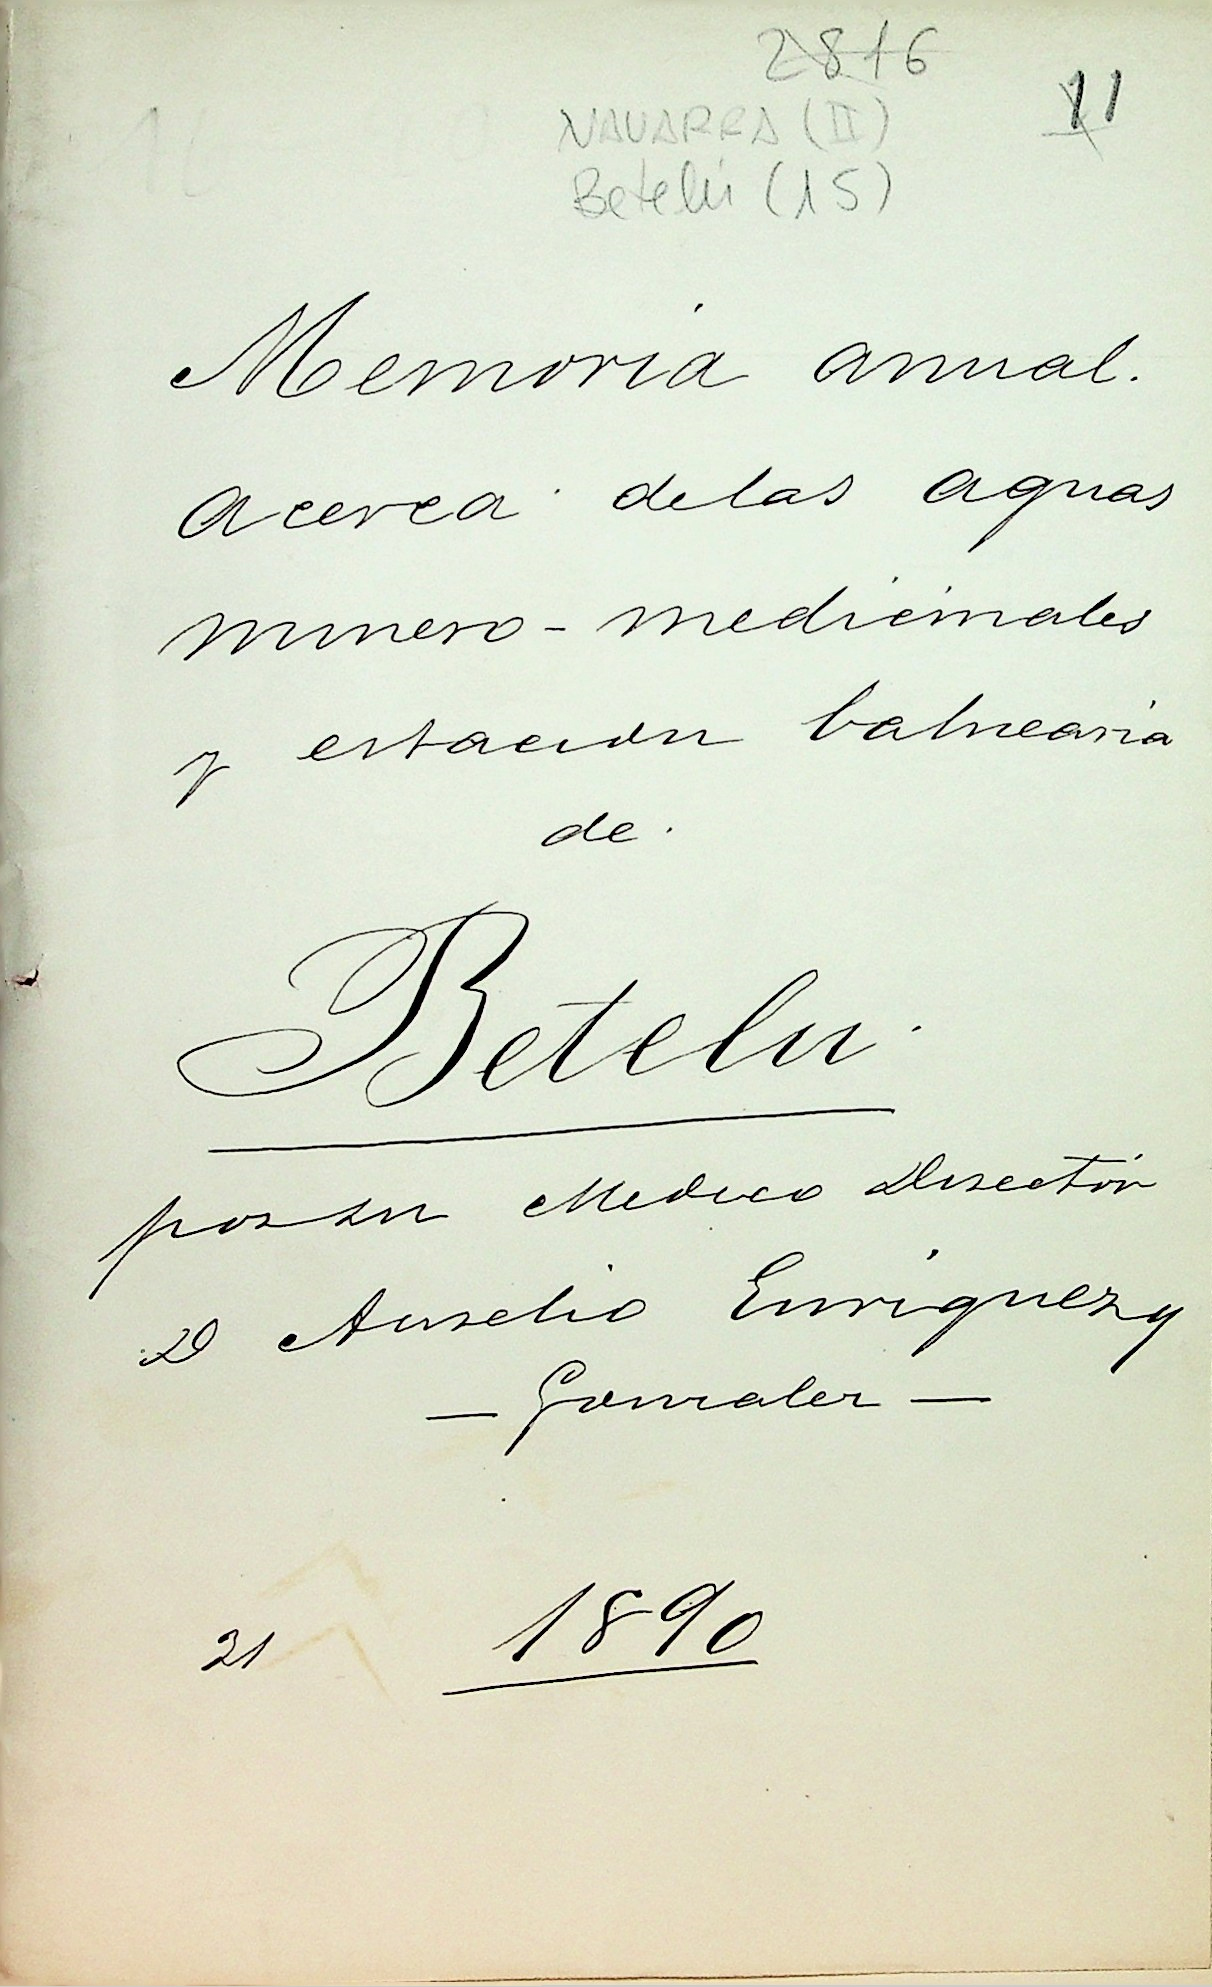 2816
11
NAVARRA (II)
Betelú (15)
Memoria anual.
Acerca de las aguas
minero-medicinales
y estacion balnearia
de.
Betelu.
por su Medico Directór
D Aurelio Enriquez y
- Gonzalez -
21
1890